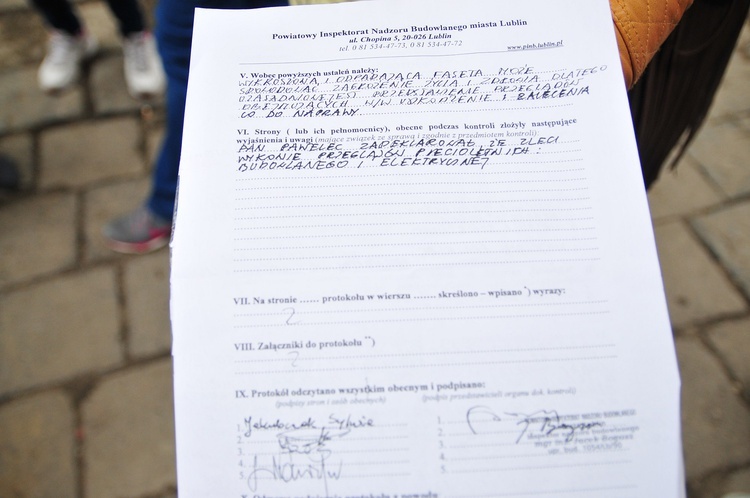 Powiatowy Inspektorat Nadzoru Budowlanego miasta Lublin
ul. Chopina 5, 20-026 Lublin
tel. 0 81 534-47-73, 0 81 534-47-72 www.pinb.lublin.pl
V. Wobec powyższych ustaleń należy:
I ODPADAJĄCA FASETA MOŻE
SPOWODOWAĆ ZAGROŻENIE ŻYCIA I ZDROWIA DLATEGO
UZASADNIONE JEST PRZEDSTAWIENIE PRZEGLĄDÓW
OBEJMUJĄCYCH W/W USZKODZENIE I ZALECENIA
CO DO NAPRAWY.
VI. Strony ( lub ich pełnomocnicy), obecne podczas kontroli złożyły następujące
wyjaśnienia i uwagi (mające związek ze sprawą i zgodnie z przedmiotem kontroli):
PAN PAWELEC ZADEKLAROWAŁ, ŻE ZLECI
WYKONIE PRZEGLĄDÓW PIĘCIOLETNICH:
BUDOWLANEGO I ELEKTRYCZNEJ
VII. Na stronie ...... protokołu w wierszu ....... skreślono – wpisano *) wyrazy:
VIII. Załączniki do protokołu **)
IX. Protokół odczytano wszystkim obecnym i podpisano:
(podpisy stron i osób obecnych) (podpis przedstawicieli organu dok. kontroli)
1. 1.
2. 2.
3. 3.
4. 4.
5. 5.